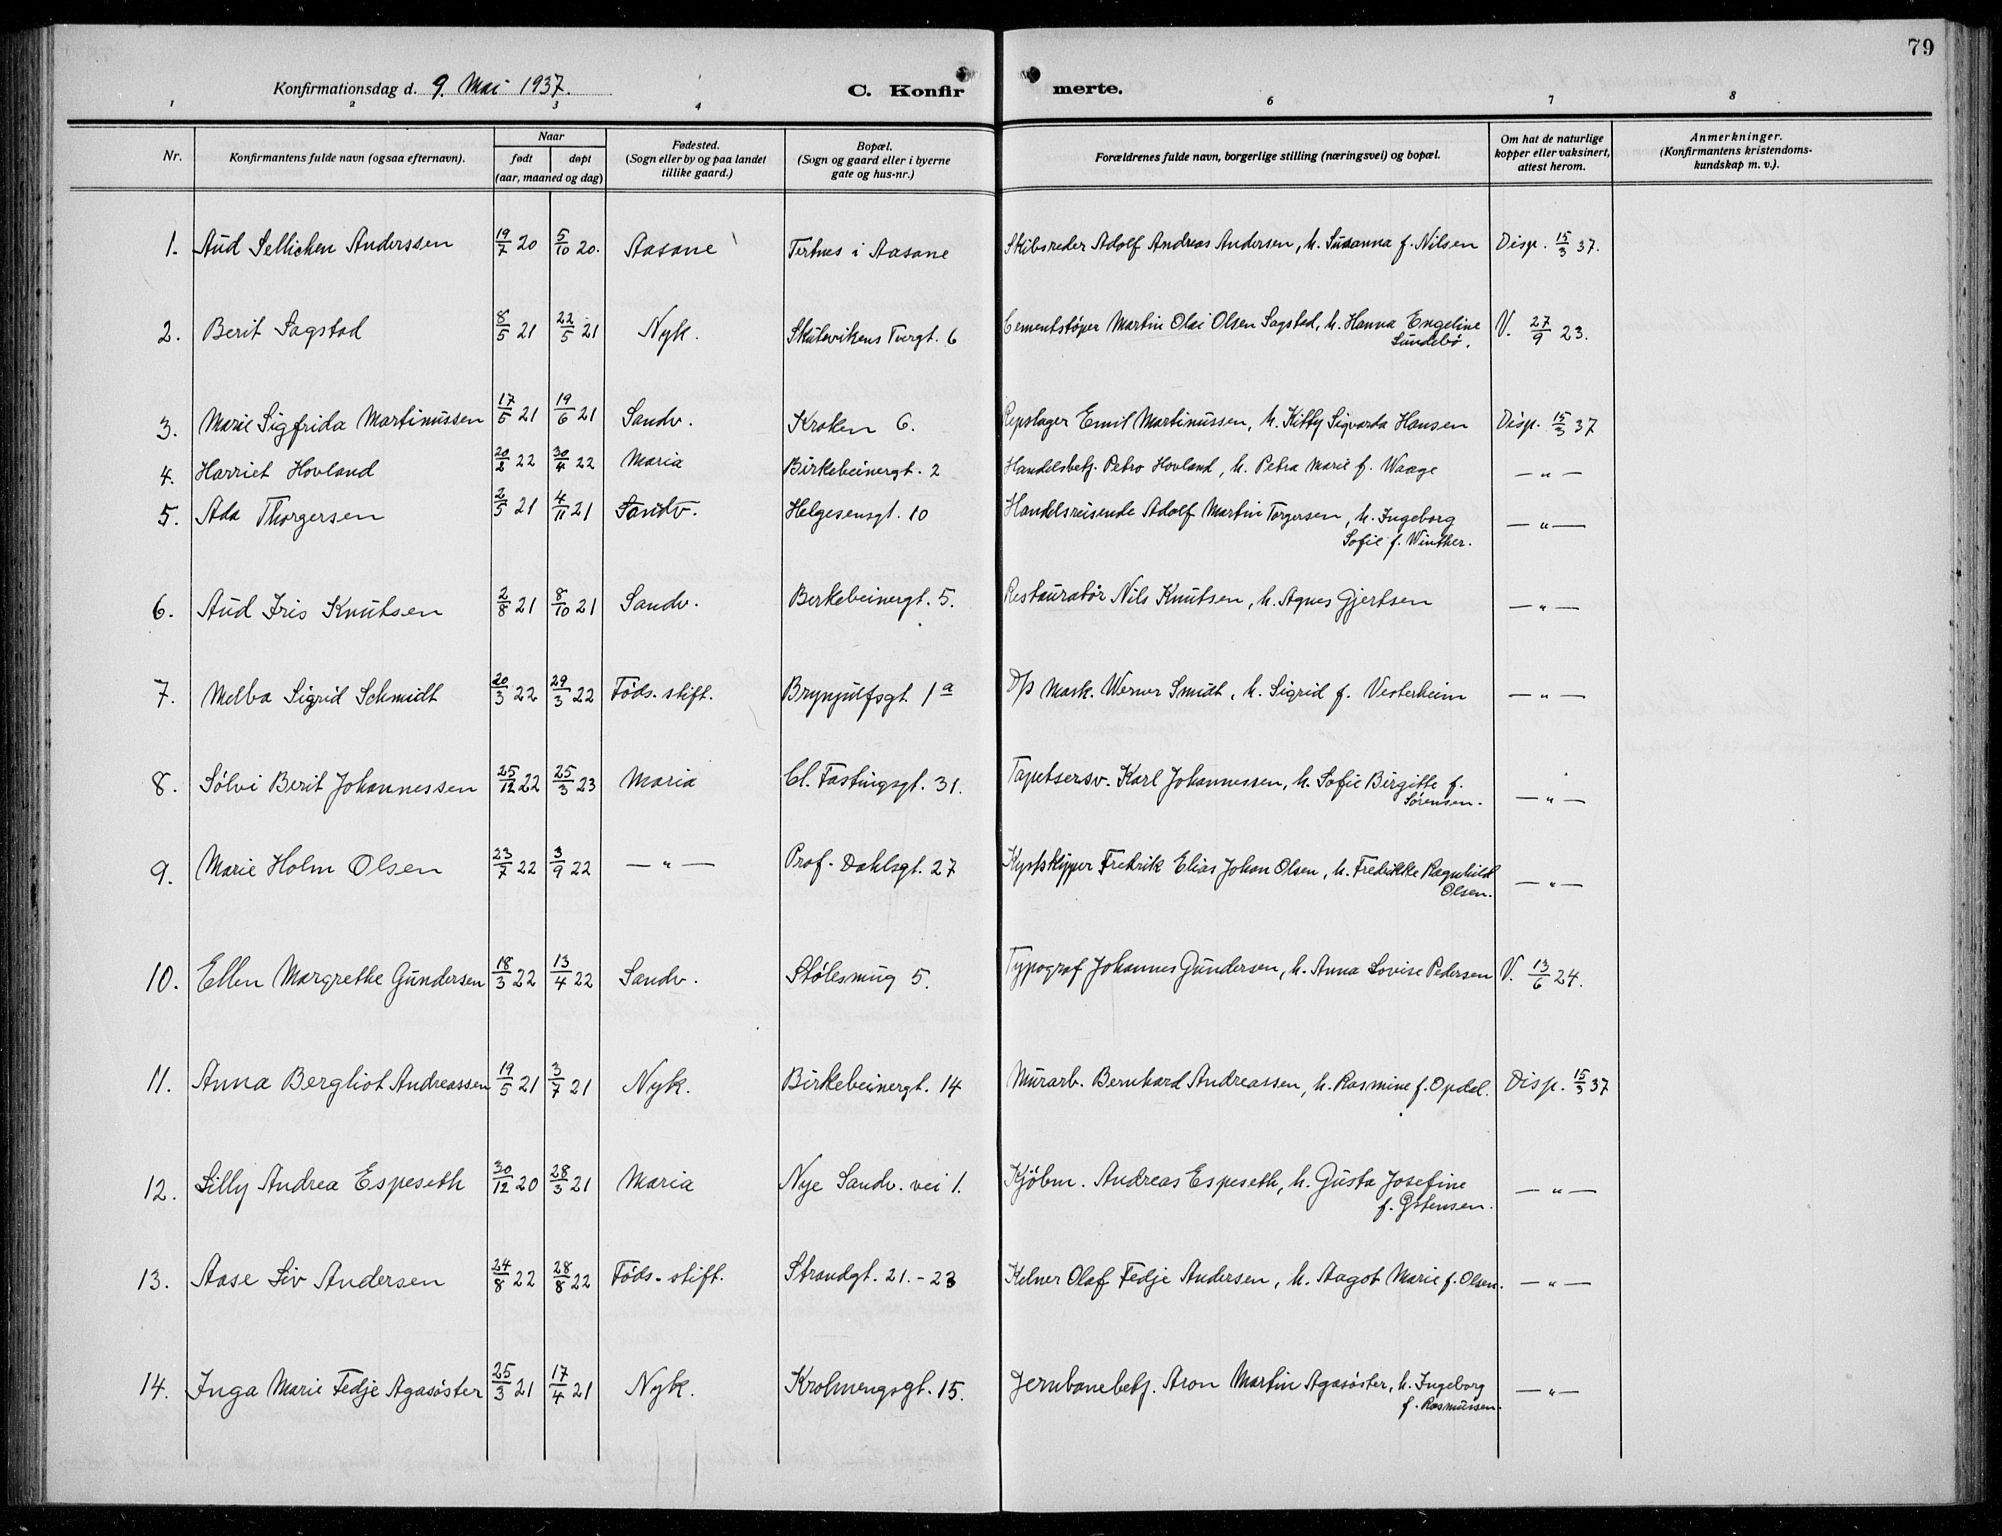 79
Konfirmationsdag d. 9. Mai 1937.
C. Konfirmerte.
1 2 3 4 5 6 7 8
Nr.
Konfirmantens fulde navn (ogsaa efternavn).
Naar
født døpt
(aar, maaned og dag)
Fødested.
(Sogn eller by og paa landet
tillike gaard.)
Bopæl.
(Sogn og gaard eller i byerne
gate og hus-nr.)
Forældrenes fulde navn, borgerlige stilling (næringsvei) og bopæl.
Om hat de naturlige
kopper eller vaksinert,
attest herom.
Anmerkninger.
(Konfirmantens kristendoms-
kundskap m. v.).
1. Aud Sellichen Anderssen 19/7 20 5/10 20. Aasane Tertnes i Aasane Skibsreder Adolf Andreas Andersen, h. Susanna f. Nilsen Disp. 15/3 37.
2. Berit Sagstad 8/5 21 22/5 21 Nyk. Skutevikens Tvergt. 6 Cementstøper Martin Olai Olsen Sagstad, h. Hanna Engeline V. 27/9 23.
Sundebø.
3. Marie Sigfrida Martinussen 17/5 21 19/6 21 Sandv. Kroken 6. Repslager Emil Martinussen, h. Kitty Sigvarda Hansen Disp. 15/3 37
4. Harriet Hovland 20/2 22 30/4 22 Maria Birkebeinergt. 2 Handelsbetj. Petro Hovland, h. Petra Marie f. Waage — " —
5. Ada Thorgersen 2/5 21 4/11 21 Sandv. Helgesensgt. 10 Handelsreisende Adolf Martin Torgersen, h. Ingeborg — " —
Sofie f. Winther.
6. Aud Iris Knutsen 2/8 21 8/10 21 Sandv. Birkebeinergt. 5. Restauratør Nils Knutsen, h. Agnes Gjertsen — " —
7. Melba Sigrid Schmidt 20/3 22 29/3 22 Føds. stift. Brynjulfsgt. 1a D/s Mask. Werner Smidt, h. Sigrid f. Vesterheim — " —
8. Sølvi Berit Johannessen 25/12 22 25/3 23 Maria Cl. Fastingsgt. 31. Tapetsersv. Karl Johannessen, h. Sofie Birgitte f. — " —
Sørensen.
9. Marie Holm Olsen 23/7 22 3/9 22 — " — Prof. Dahlsgt. 27 Kystskipper Fredrik Elias Johan Olsen, h. Fredrikke Ragnhild — " —
Olsen.
10. Ellen Margrethe Gundersen 18/3 22 13/4 22 Sandv. Stølesmug 5. Typograf Johannes Gundersen, h. Anna Lovise Pedersen V. 13/6 24.
11. Anna Bergliot Andreassen 19/5 21 3/7 21 Nyk. Birkebeinergt. 14 Murarb. Bernhard Andreassen, h. Rasmine f. Opdal. Disp. 15/3 37
12. Lilly Andrea Espeseth 30/12 20 28/3 21 Maria Nye Sandv. vei 1. Kjøbm. Andreas Espeseth, h. Gusta Josefine — " —
13. Aase Liv Andersen 24/8 22 28/8 22 Føds. stift. Strandgt. 21.-23 Kelner Olaf Fedje Andersen, h. Aagot Marie f. Olsen. — " —
14. Inga Marie Fedje Agasøster 25/3 21 17/4 21 Nyk. Krohnengsgt. 15. Jernbanebetj. Aron Martin Agasøster, h. Ingeborg — " —
f. Rasmussen.